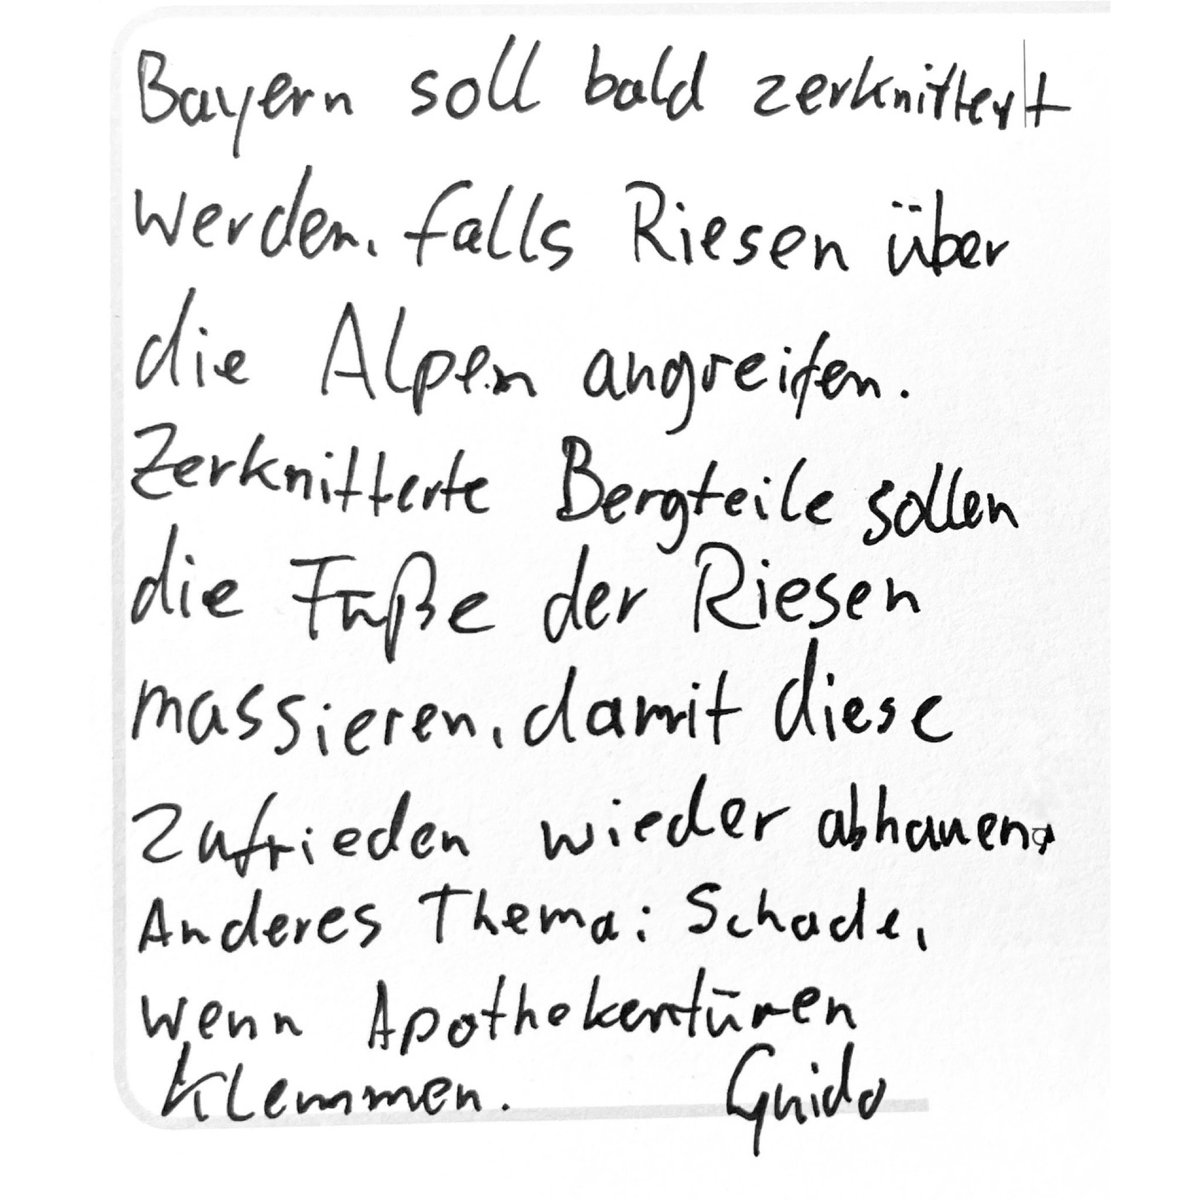 Bayern soll bald zerknittert
werden, falls Riesen über
die Alpen angreifen.
Zerknitterte Bergteile sollen
die Füße der Riesen
massieren, damit diese
zufrieden wieder abhauen.
Anderes Thema: Schade,
wenn Apothekentüren
klemmen. Guido